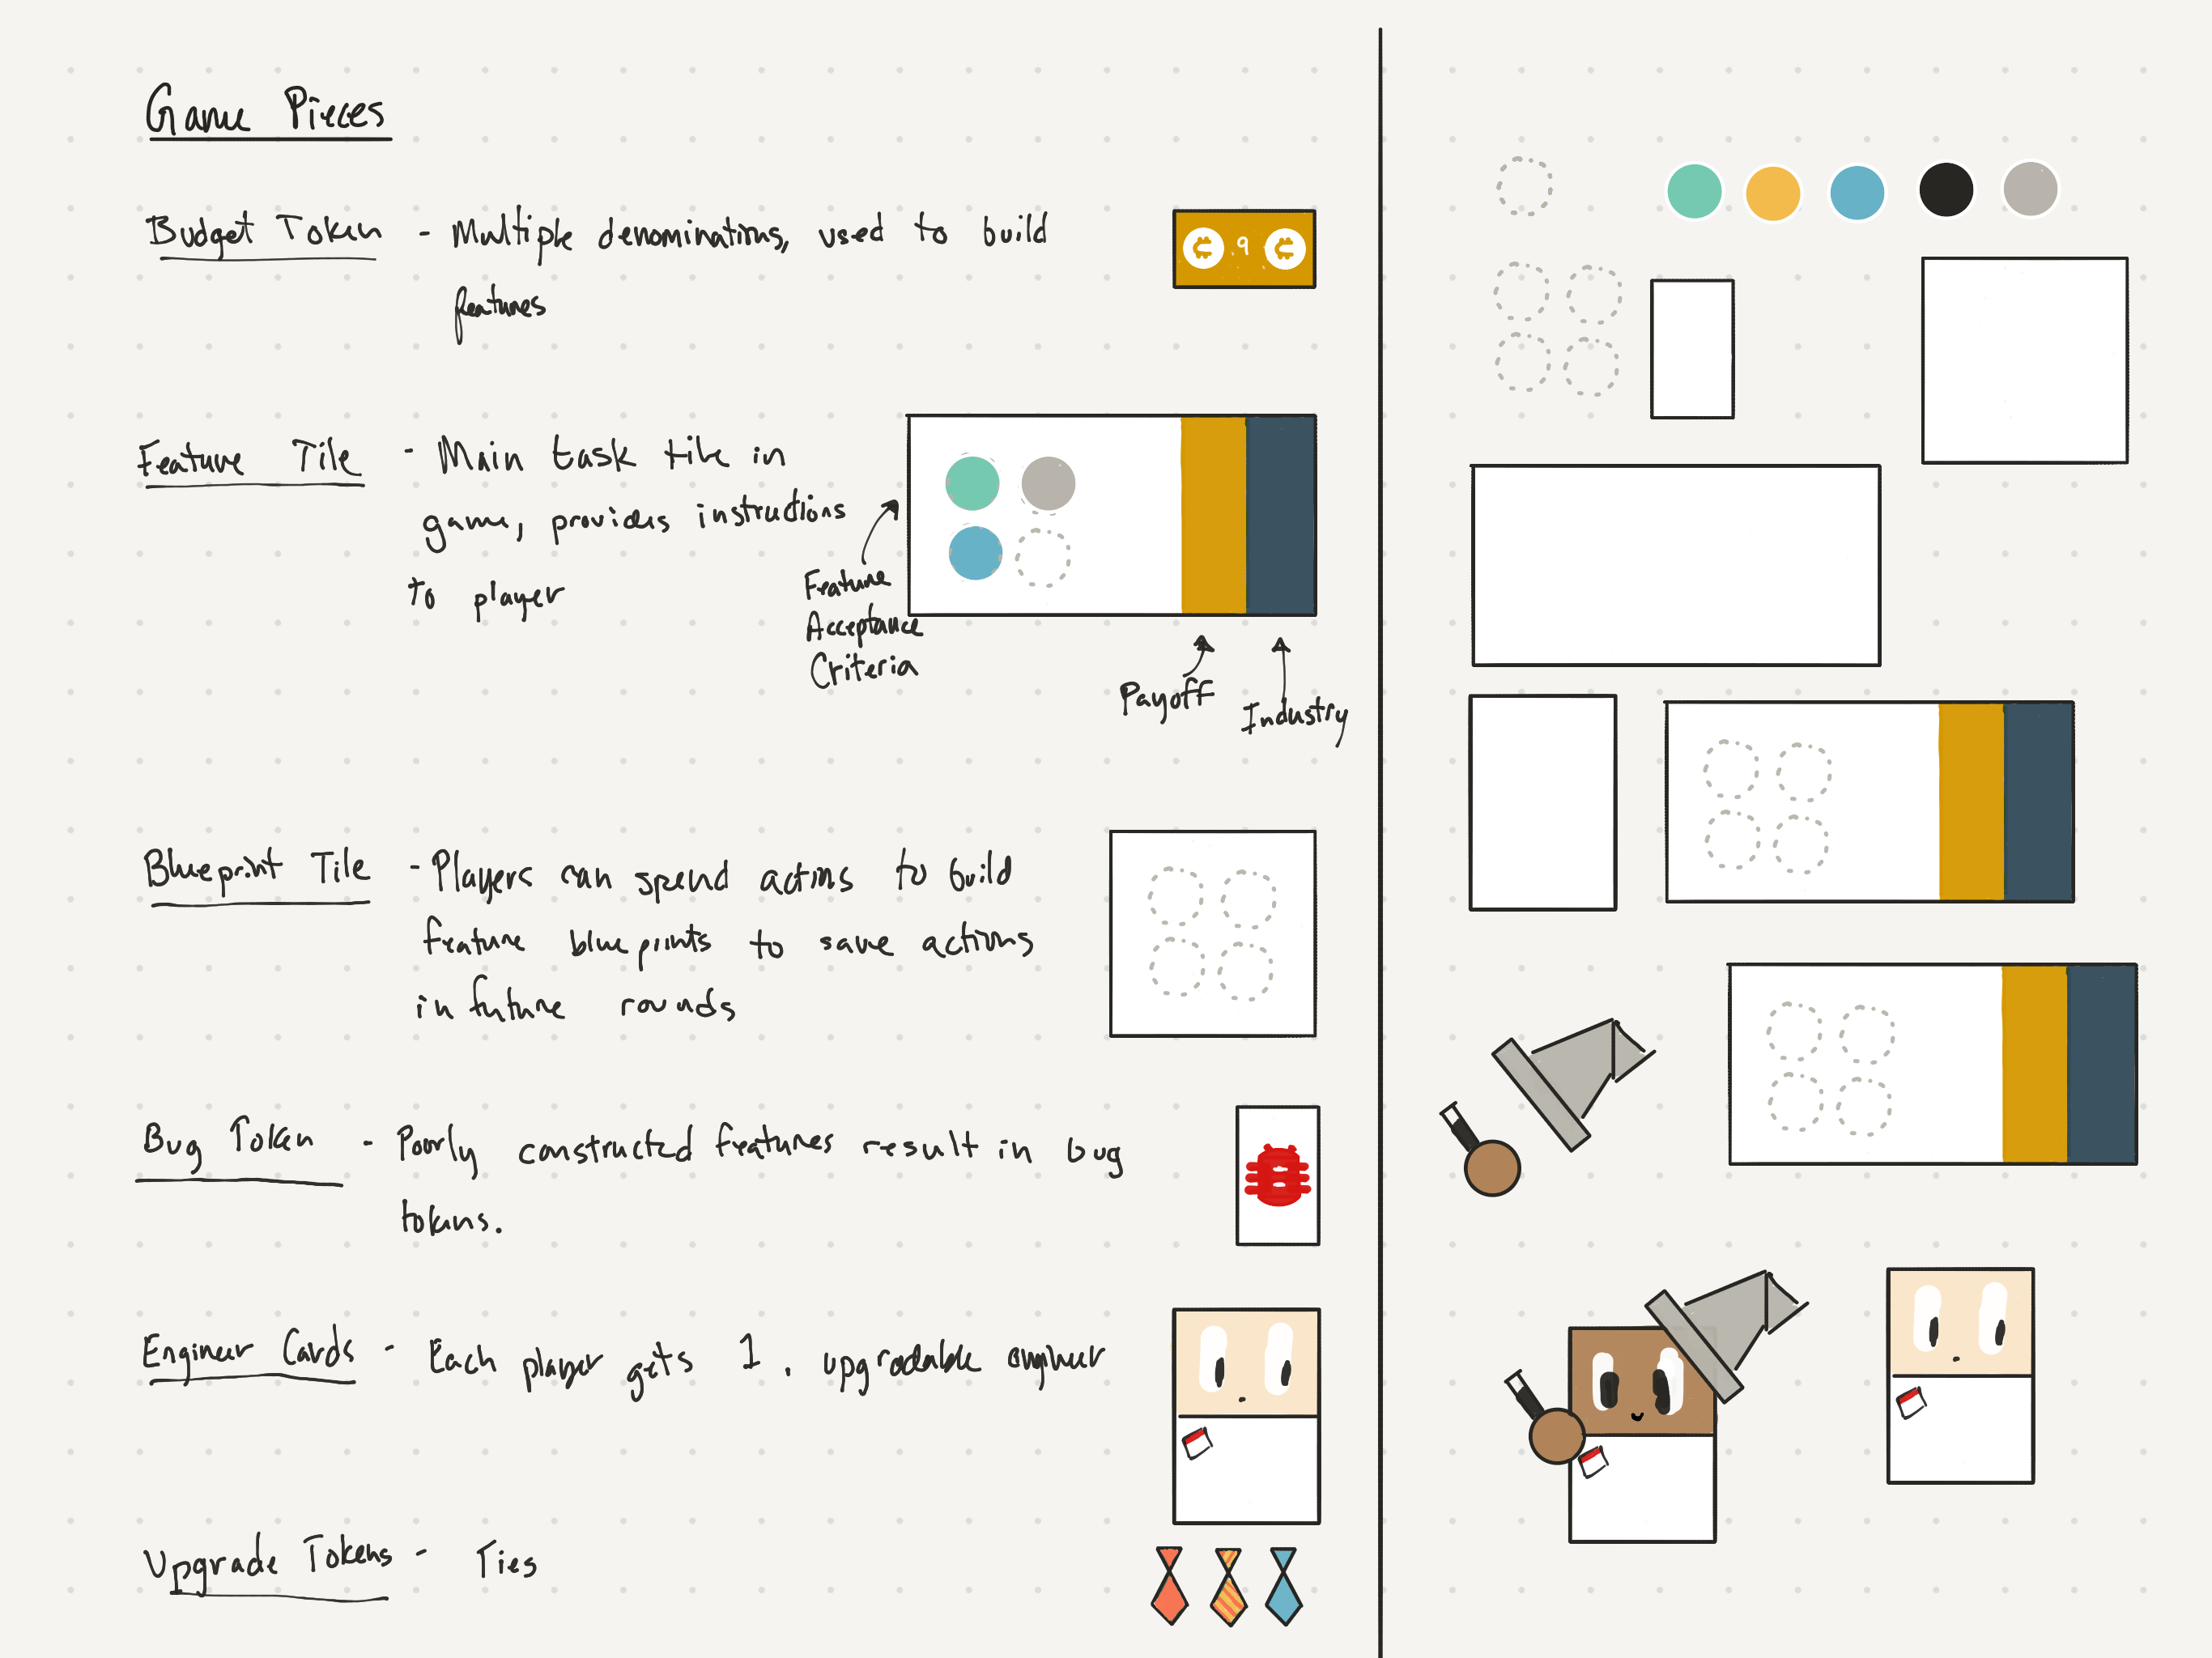 Game Pieces
Budget Token - Multiple denominations, used to build
features
₵ 9 ₵
Feature Tile - Main task tile in
game, provides instructions
to player
Feature
Acceptance
Criteria
Payoff
Industry
Blueprint Tile - Players can spend actions to build
feature blueprints to save actions
in future rounds
Bug Token - Poorly constructed features result in bug
tokens.
Engineer Cards - Each player gets 1, upgradable engineer
Upgrade Tokens - Ties